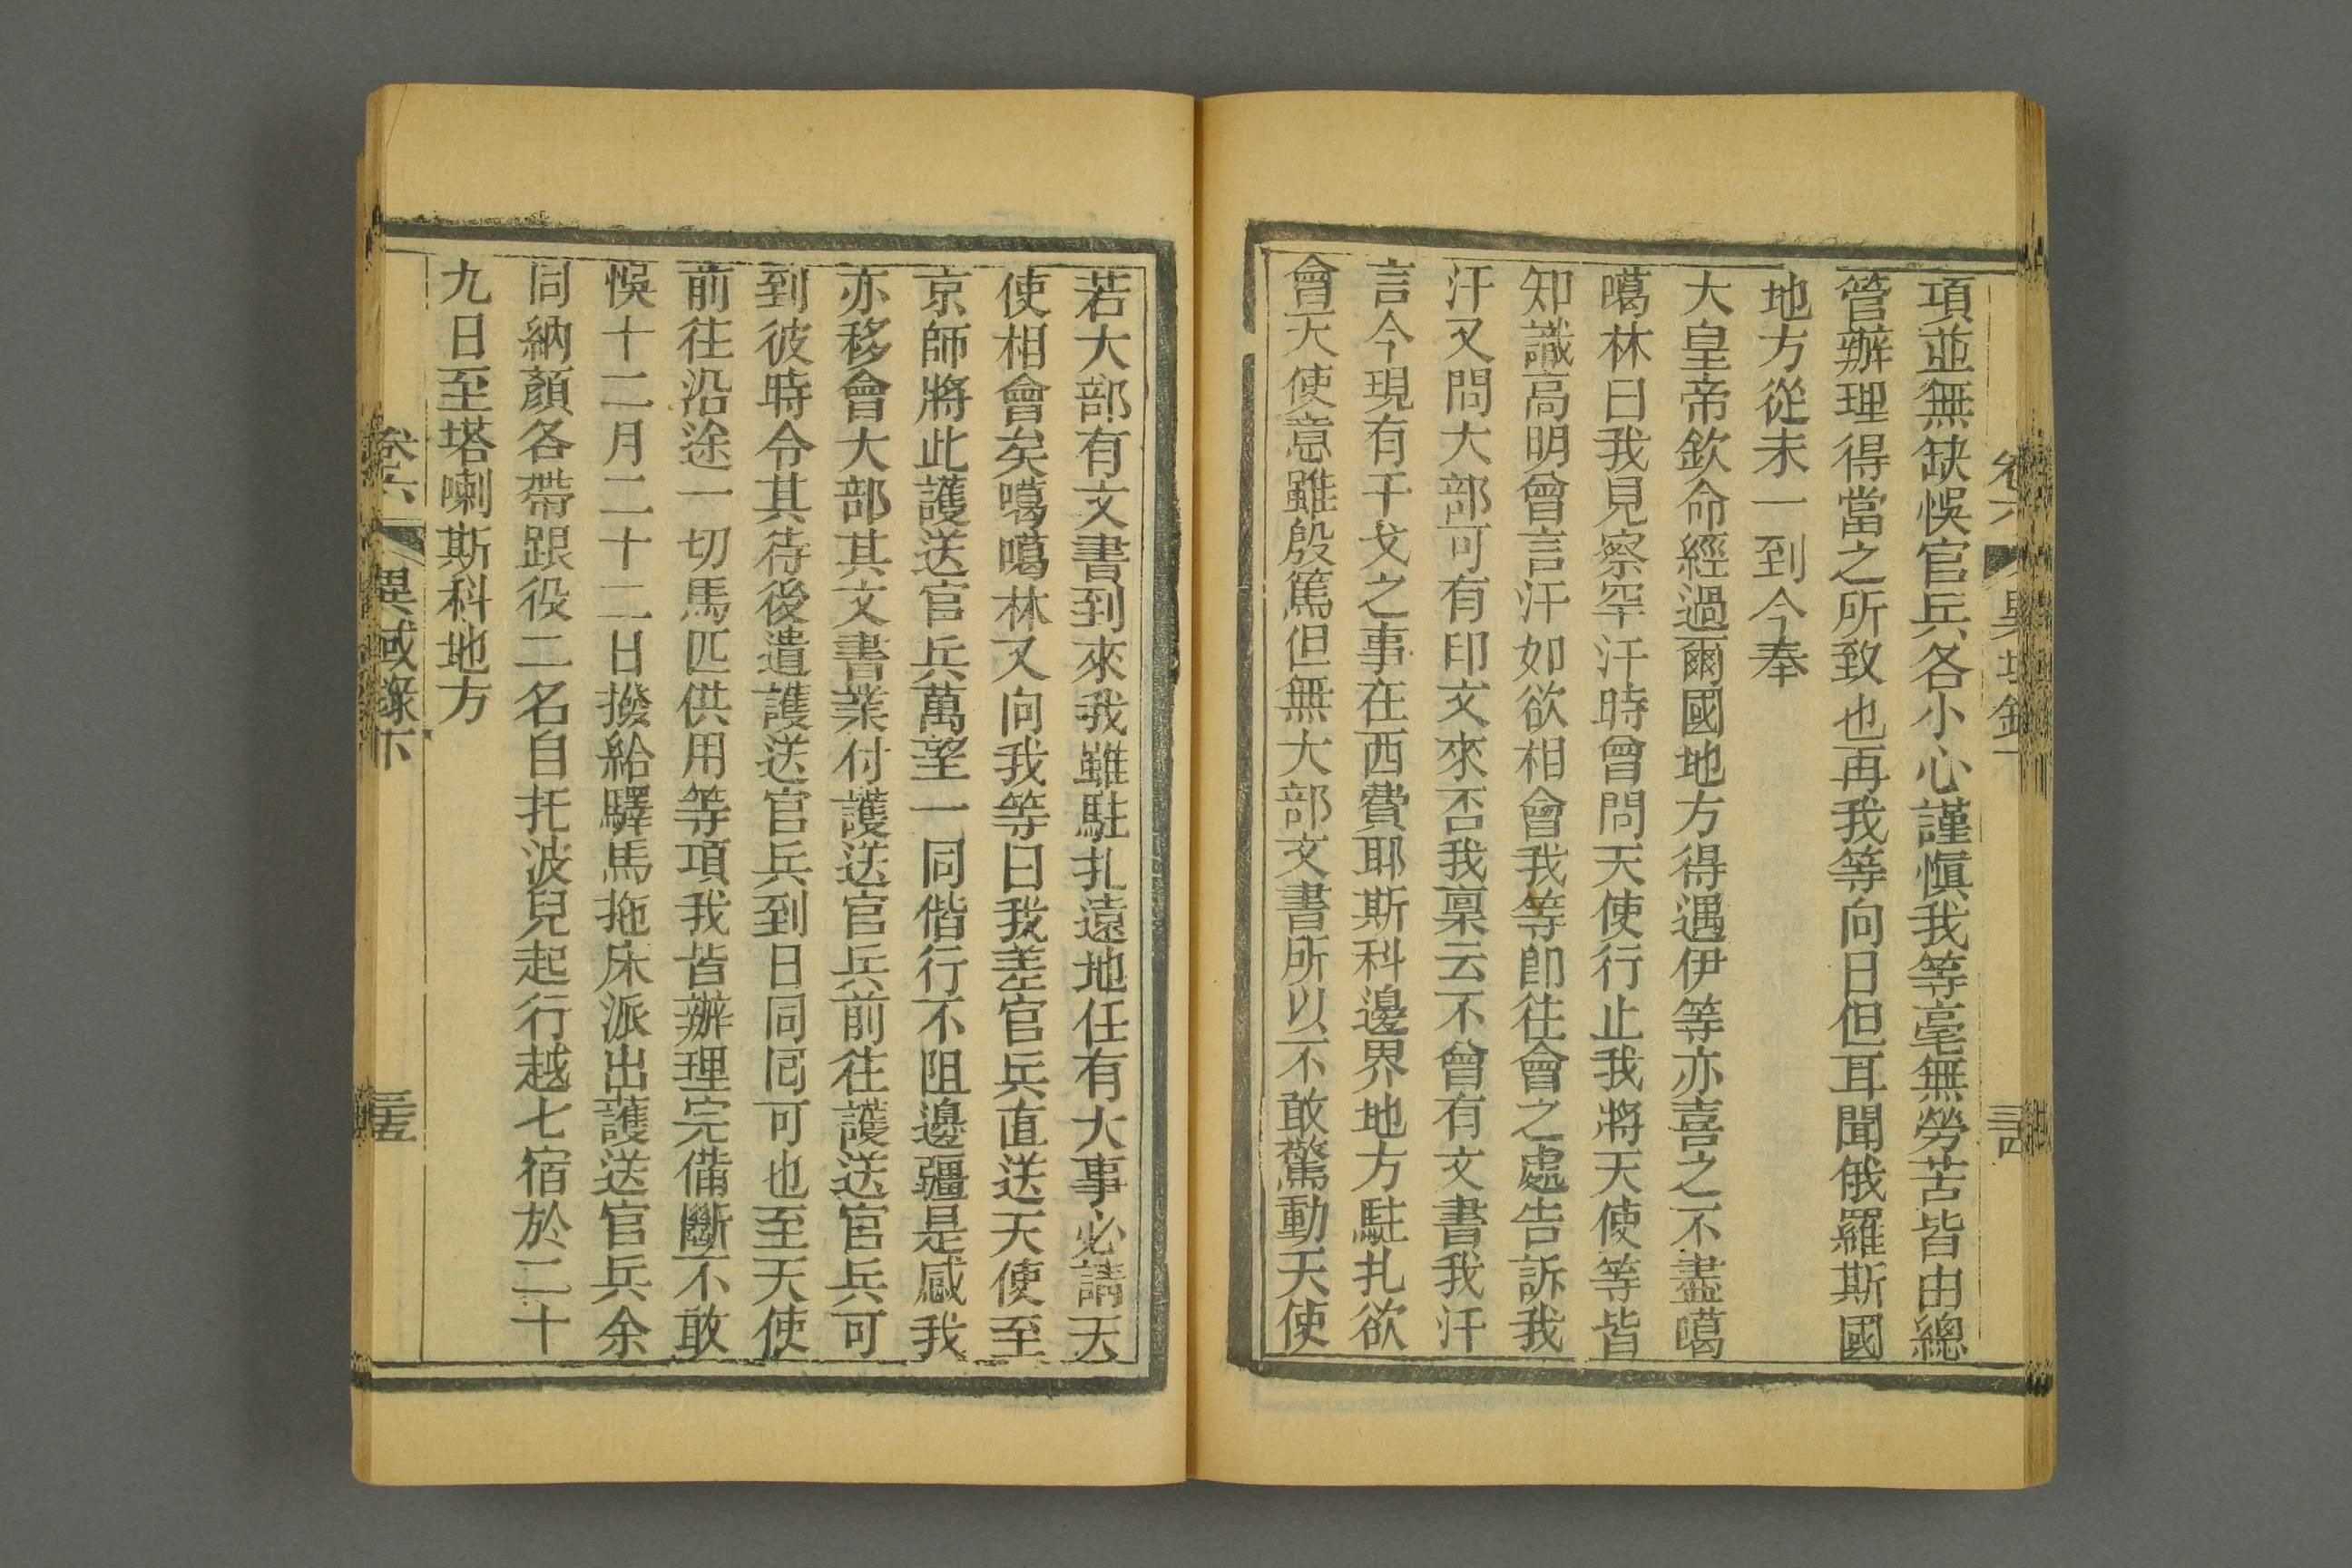 項並無缺悞官兵各小心謹愼我等毫無勞苦皆由總
管辦理得當之所致也再我等向日但耳聞俄羅斯國
地方從未一到今奉
大皇帝欽命經過爾國地方得遇伊等亦喜之不盡噶
噶林曰我見察罕汗時曾問天使行止我將天使等皆
知識高明曾言汗如欲相會我等卽往會之處告訴我
汗又問大部可有印文來否我禀云不曾有文書我汗
言今現有干戈之事在西費耶斯科邊界地方駐扎欲
會天使意雖殷篤但無大部文書所以不敢驚動天使
若大部有文書到來我雖駐扎遠地任有大事必請天
使相會矣噶噶林又向我等曰我差官兵直送天使至
京師將此護送官兵萬望一同偕行不阻邊疆是感我
亦移會大部其文書業付護送官兵前往護送官兵可
到彼時令其待後遣護送官兵到日同囘可也至天使
前往沿途一切馬匹供用等項我皆辦理完備斷不敢
悞十二月二十二日撥給驛馬拖床派出護送官兵余
同納顏各帶跟役二名自托波兒起行越七宿於二十
九日至塔喇斯科地方
卷六 異域錄下 三五